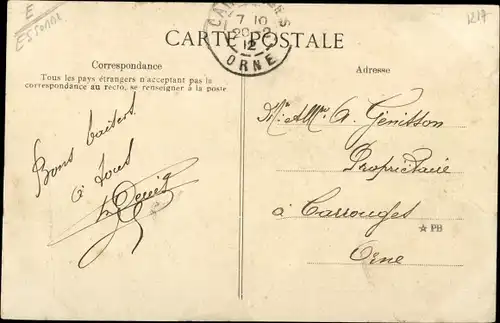 E
ESSONNE
1217
CARTE POSTALE
7 10
20-2
12
ORNE
Correspondance
Tous les pays étrangers n'acceptant pas la
correspondance au recto, se renseigner à la poste.
Adresse
Bons baisers
à tous
Mr & Mme A. Genisson
Propriétaire
à Carrouges
Orne
★ PB